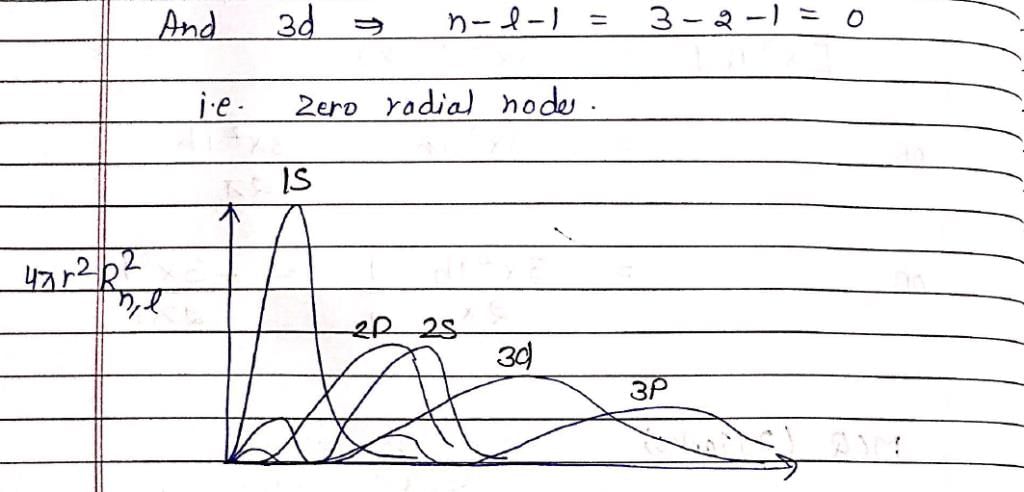 And 3d ⇒ n-l-1 = 3-2-1 = 0
i.e. Zero radial node.
1S
4πr²R²n,l
2P 2S
3d
3P